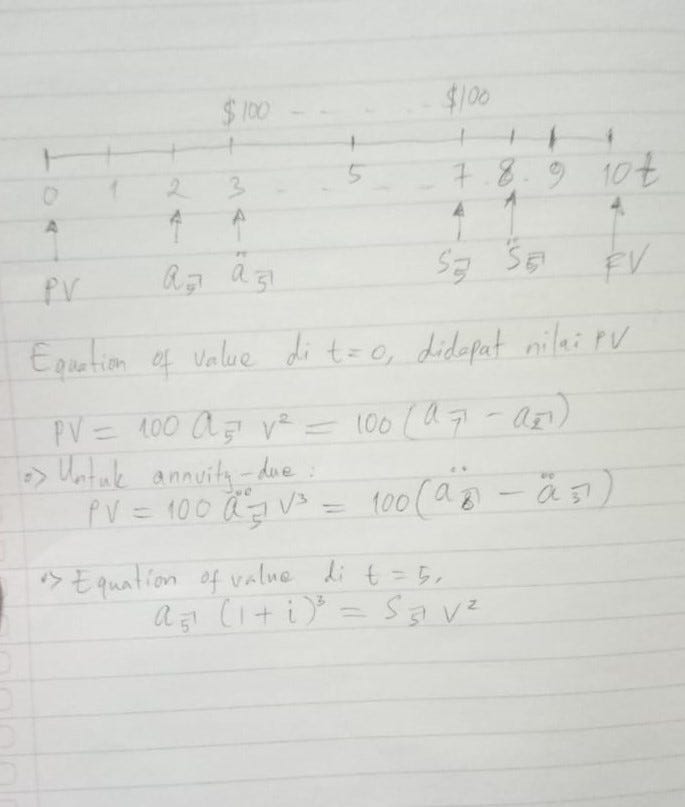 $100 - - . . . . - $100
0 1 2 3 - . . 5 . . . - 7 . 8 . 9 10 t
PV a5⌉ ä5⌉ S5⌉ S̈5⌉ FV
Equation of value di t=0, didapat nilai PV
PV = 100 a5⌉ v² = 100 (a7⌉ - a2⌉)
=> Untuk annuity-due :
PV = 100 ä5⌉ v³ = 100 (ä8⌉ - ä3⌉)
=> Equation of value di t = 5,
a5⌉ (1+i)³ = S5⌉ v²